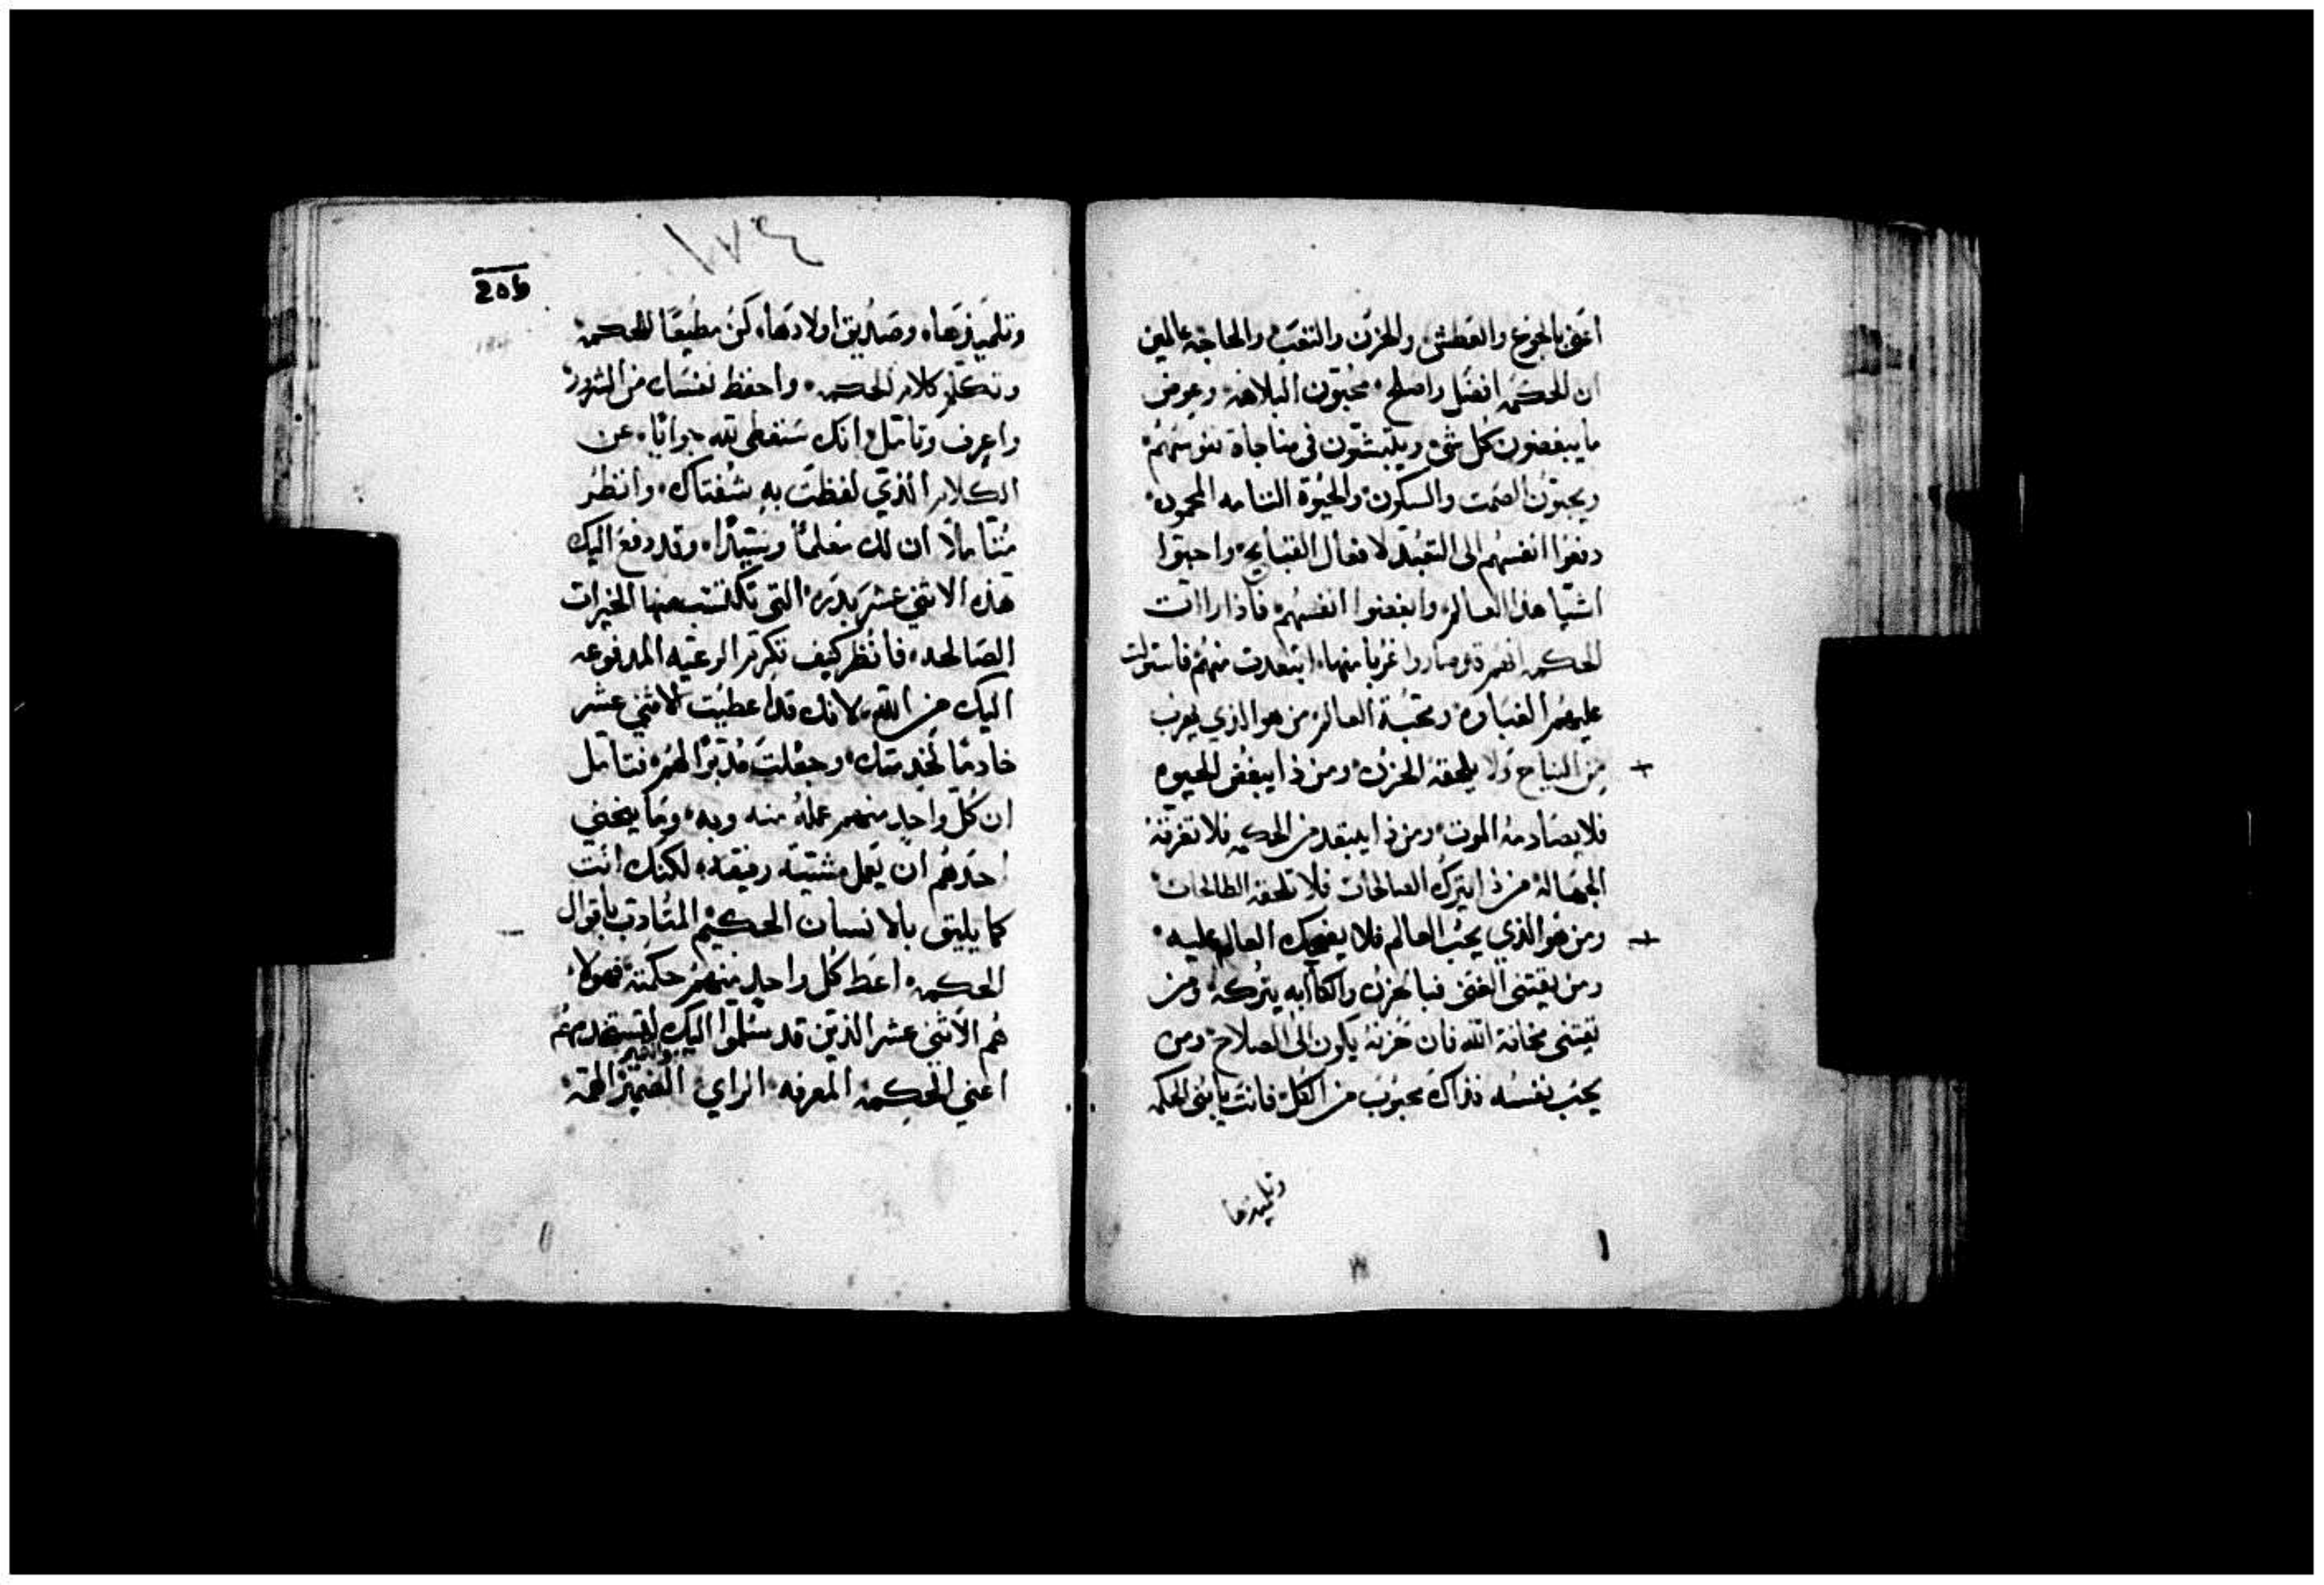 اعني بالجوع والعطش والحزن والتعب والحاجه عالمين
ان الحكمه افضل واصلح محبون البلاهه وعوض
ما يبغضون كل شي ويلتبثون في مناجاة نفوسهم
ويحبون الصمت والسكون والحيوة التامه المحموده
دفعوا انفسهم الى التعبد لافعال القبايح واحبوا
اشيا هذا العالم وابغضوا انفسهم فاذا راات
الحكمه انهم قد صاروا غربا منها ابتعدت منهم فاستولت
عليهم الغباوه ومحبة العالم من هو الذي يهرب
من النياح ولا يلحقه الحزن ومن ذا يبغض الحيوه
فلا يصادمه الموت ومن ذا يبتعد من الحكمه فلا تغرقه
الجهاله من ذا يترك الصالحات فلا تلحقه الطالحات
ومن هو الذي يحب العالم فلا يضحك العالم عليه
ومن يقتني الغنى فبالحزن والكاابه يتركه ومن
يقتني مخافة الله فان حزنه يكون الى الصلاح ومن
يحب نفسه فذاك محبوب من الكل فانت يابني الحكمه
وتلميذها
١٧٤
205
وتلميذها وصديق اولادها كن مطيعا للحكمه
وتكلم كلام الحكمه واحفظ نفسك من الشرور
واعرف وتامل انك ستعطي لله جوابا عن
الكلام الذي لفظت به شفتاك وانظر
متاملا ان لك معلما وسيدا وقد دفع اليك
هذه الاثني عشر بدره التي تكتسب منها الخيرات
الصالحه فانظر كيف تكرم الوعيه المدفوعه
اليك من الله لانك قد اعطيت الاثني عشر
خادما لخدمتك وجعلت مدبرا لهم فتامل
ان كل واحد منهم عمله منه وبه وما ينبغي
احدهم ان يعمل مشية رفيقه لكنك انت
كما يليق بالانسان الحكيم المتادب باقوال
الحكمه اعط كل واحد منهم حكمته فهولا
هم الاثني عشر الذين قد سلموا اليك لتستخدمهم
اعني الحكمه المعرفه الراي التمييز الهمه